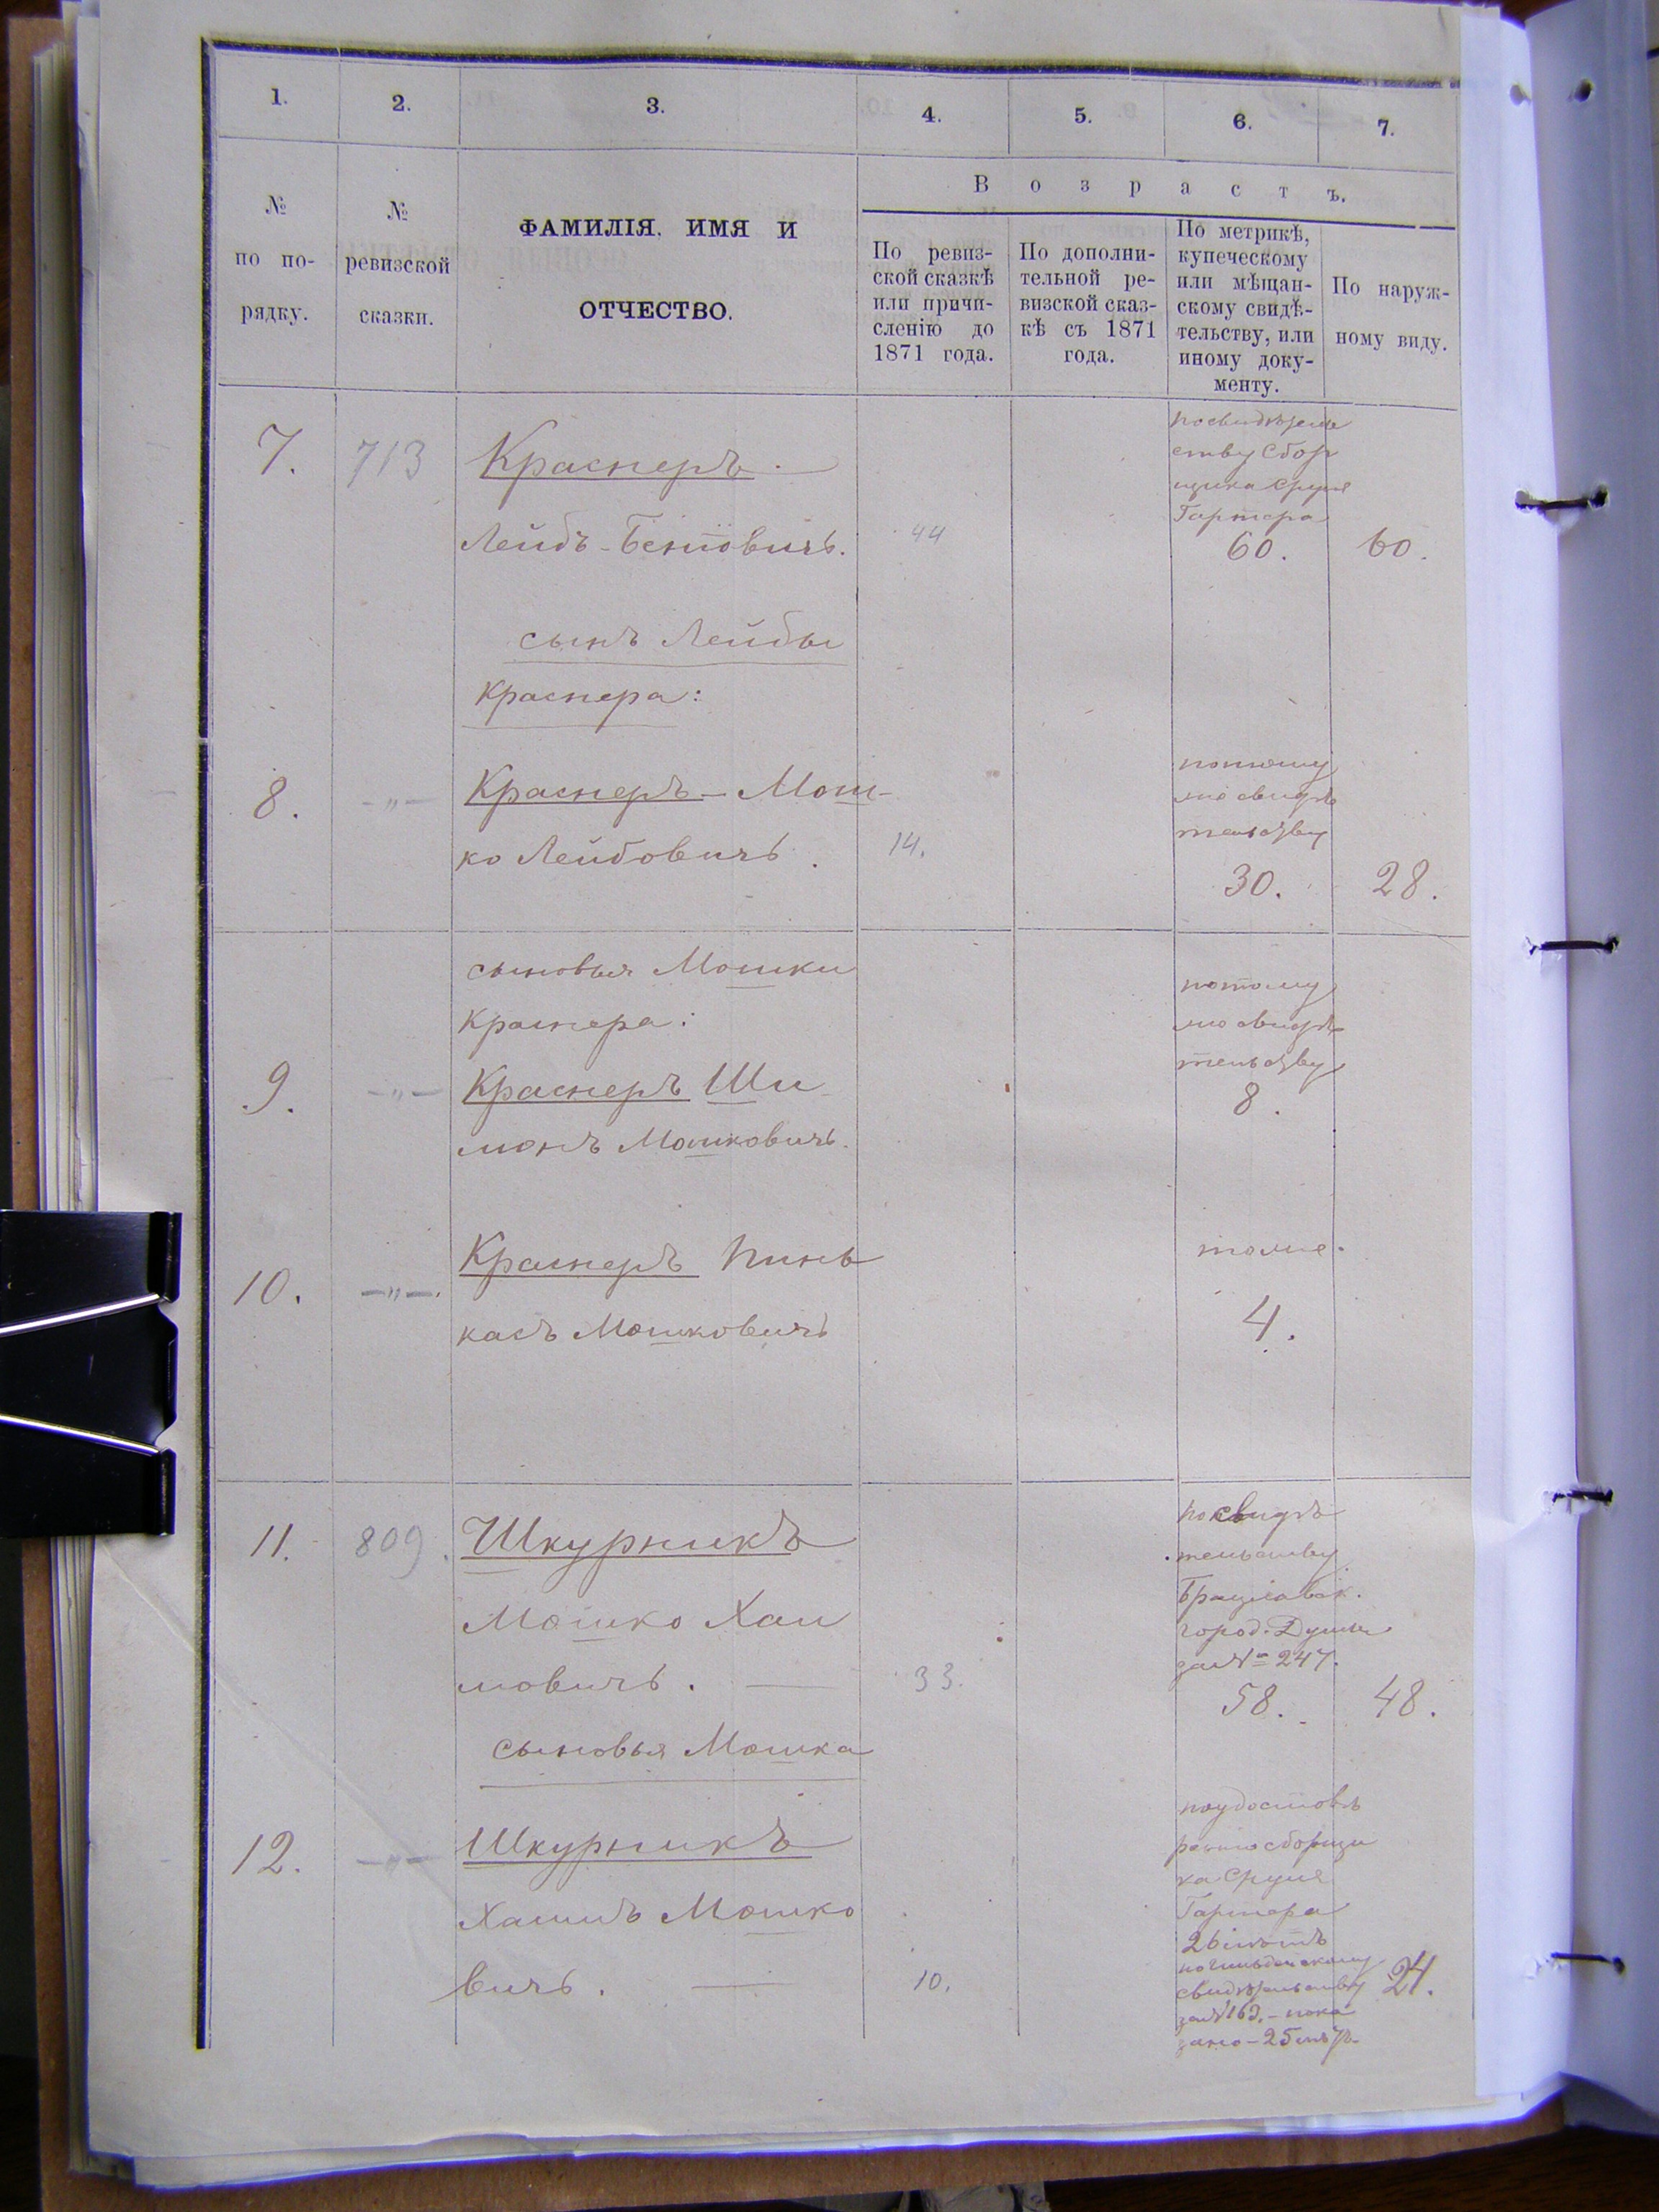 1.
2.
3.
4.
5.
6.
7.
№
по по-
рядку.
№
ревизской
сказки.
ФАМИЛІЯ, ИМЯ И
ОТЧЕСТВО.
Возрастъ.
По ревиз-
ской сказкѣ
или причи-
сленію до
1871 года.
По дополни-
тельной ре-
визской сказ-
кѣ съ 1871
года.
По метрикѣ,
купеческому
или мѣщан-
скому свидѣ-
тельству, или
иному доку-
менту.
По наруж-
ному виду.
7.
713
Краснеръ.
Лейбъ-Бенювичъ.
44
по свидѣтель
ству Сбор
щика Сруля
Гартера
60.
60.
сынъ Лейбы
Краснера:
8.
-„-
Краснеръ-Мош-
ко Лейбовичъ.
14.
потому
же свидѣ
тельству
30.
28.
сыновья Мошки
Краснера:
9.
-„-
Краснеръ Ши
монъ Мошковичъ.
потому
же свидѣ
тельству
8.
10.
-„-.
Краснеръ Пинь
касъ Мошковичъ
тоже.
4.
11.
809.
Шкурникъ
Мошко Хаи
мовичъ.
33.
по свидѣ
тельству
Брацлавск.
город. Думы
за № 247.
58.
48.
сыновья Мошка
12.
-„-
Шкурникъ
Хаимъ Мошко
вичъ.
10.
по удостовѣ
ренію сборщи
ка Сруля
Гартера
26 лѣтъ
свидѣтельству
за № 163. - пока
зано - 25 лѣтъ.
24.